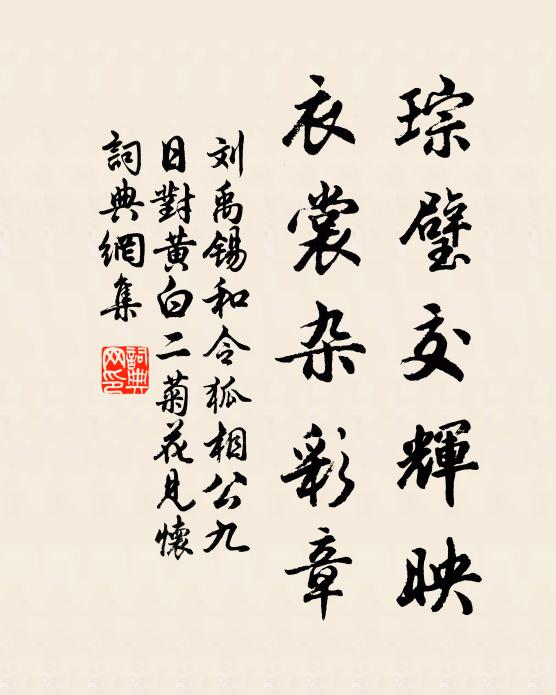 琮璧交輝映
衣裳杂彩章
刘禹锡和令狐相公九
日對黄白二菊花見懷
詞典網集
詞典网印